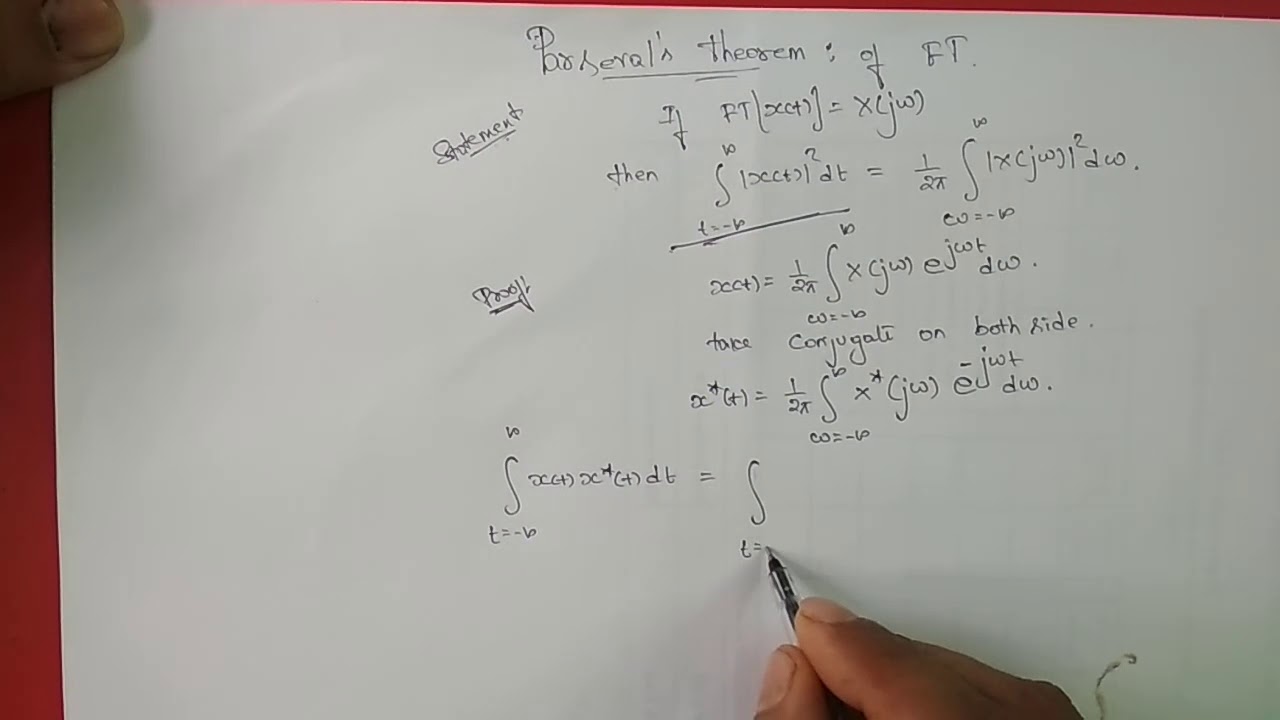 Parseval's theorem : of FT.
Statement
If FT[x(t)] = X(jω)
then ∫_{t=-∞}^{∞} |x(t)|² dt = 1/2π ∫_{ω=-∞}^{∞} |X(jω)|² dω.
Proof:
x(t) = 1/2π ∫_{ω=-∞}^{∞} X(jω) e^{jωt} dω.
take conjugate on both side.
x*(t) = 1/2π ∫_{ω=-∞}^{∞} X*(jω) e^{-jωt} dω.
∫_{t=-∞}^{∞} x(t) x*(t) dt = ∫_{t=